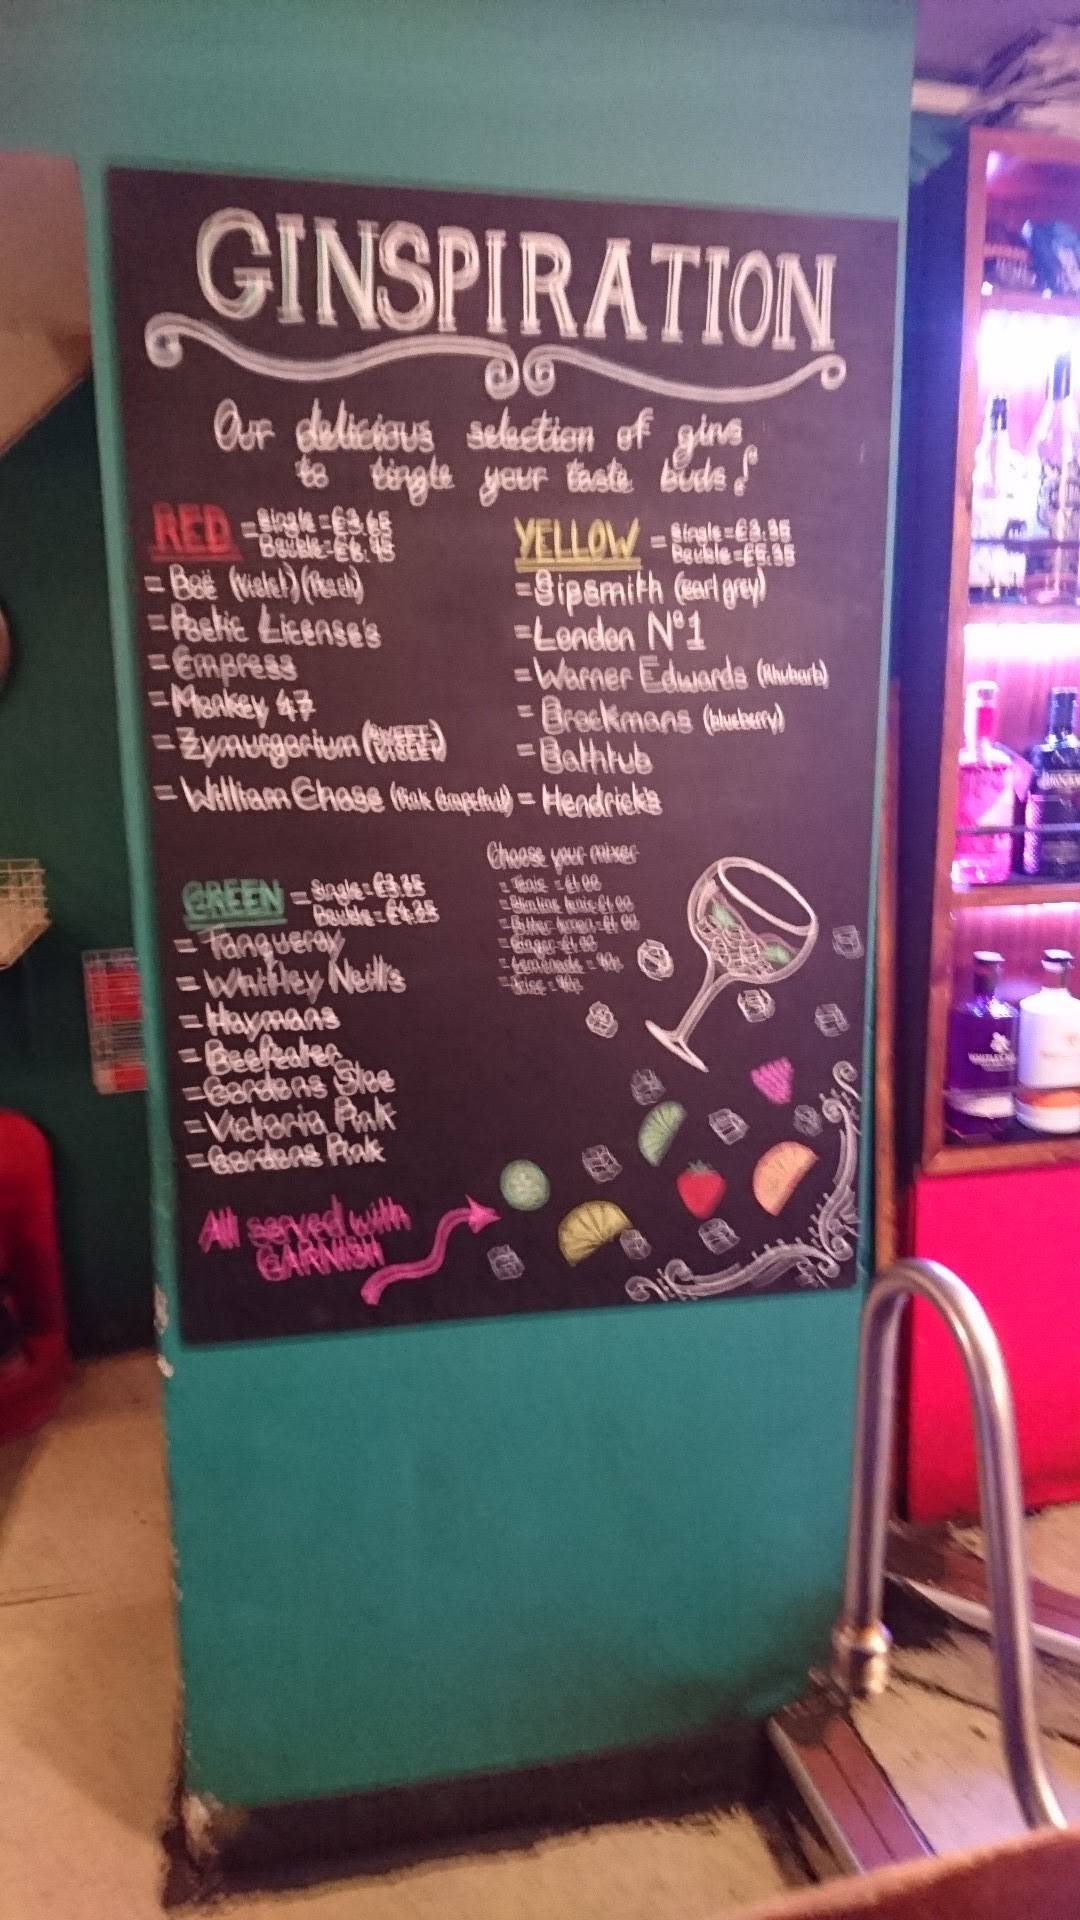 GINSPIRATION
Our delicious selection of gins
to tingle your taste buds!
RED = Single = £3.65
Double = £6.45
= Boë (Violet) (Peach)
= Poetic License's
= Empress
= Monkey 47
= Zymurgorium (SWEET VIOLET)
= William Chase (Pink Grapefruit)
YELLOW = Single = £3.35
Double = £5.35
= Sipsmith (earl grey)
= London Nº1
= Warner Edwards (Rhubarb)
= Brockmans (blueberry)
= Bathtub
= Hendrick's
GREEN = Single = £3.25
Double = £4.25
= Tanqueray
= Whitley Neill's
= Haymans
= Beefeater
= Gordons Sloe
= Victoria Pink
= Gordons Pink
Choose your mixer
= Tonic = £1.00
= Slimline tonic £1.00
= Bitter lemon = £1.00
= Ginger = £1.00
= Lemonade = 90p
= 90p
All served with
GARNISH
BROCKMANS
WHITLEY